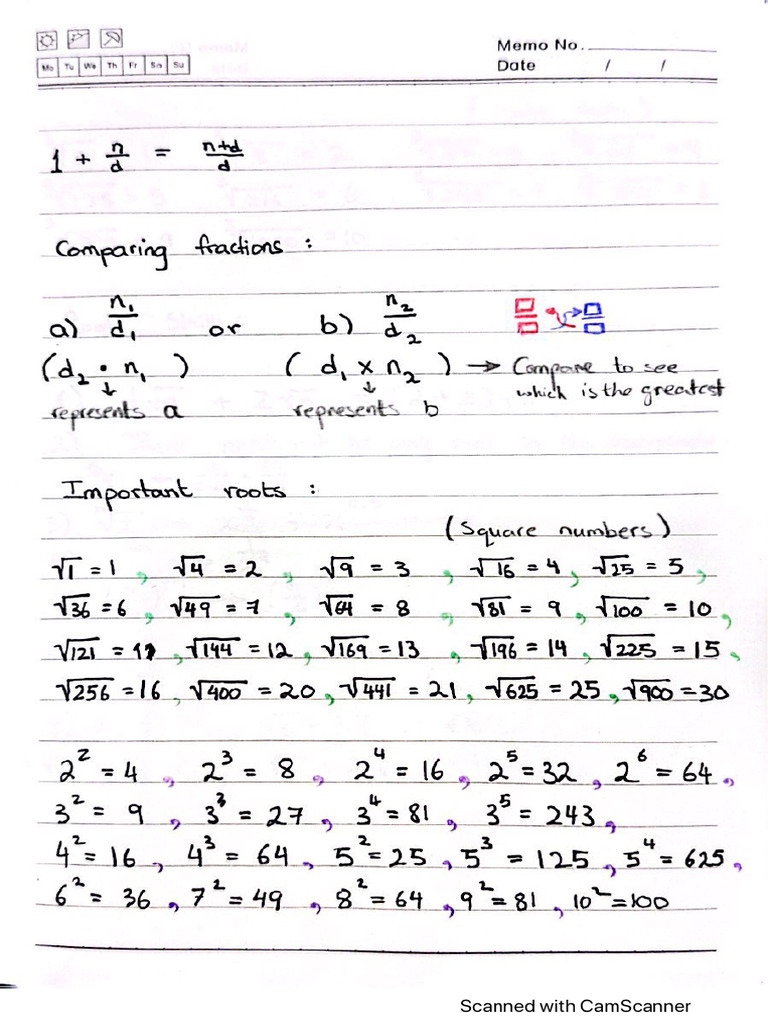 Memo No.
Mo Tu We Th Fr Sa Su
Date / /
1 + n/d = n+d/d
Comparing fractions :
a) n₁/d₁ or b) n₂/d₂
(d₂ • n₁) (d₁ × n₂) → Compare to see
which is the greatest
represents a represents b
Important roots :
(Square numbers)
√1 = 1 , √4 = 2 , √9 = 3 , √16 = 4 , √25 = 5 ,
√36 = 6 , √49 = 7 , √64 = 8 , √81 = 9 , √100 = 10 ,
√121 = 11 , √144 = 12 , √169 = 13 , √196 = 14 , √225 = 15 ,
√256 = 16 , √400 = 20 , √441 = 21 , √625 = 25 , √900 = 30
2² = 4 , 2³ = 8 , 2⁴ = 16 , 2⁵ = 32 , 2⁶ = 64 ,
3² = 9 , 3³ = 27 , 3⁴ = 81 , 3⁵ = 243 ,
4² = 16 , 4³ = 64 , 5² = 25 , 5³ = 125 , 5⁴ = 625 ,
6² = 36 , 7² = 49 , 8² = 64 , 9² = 81 , 10² = 100
Scanned with CamScanner